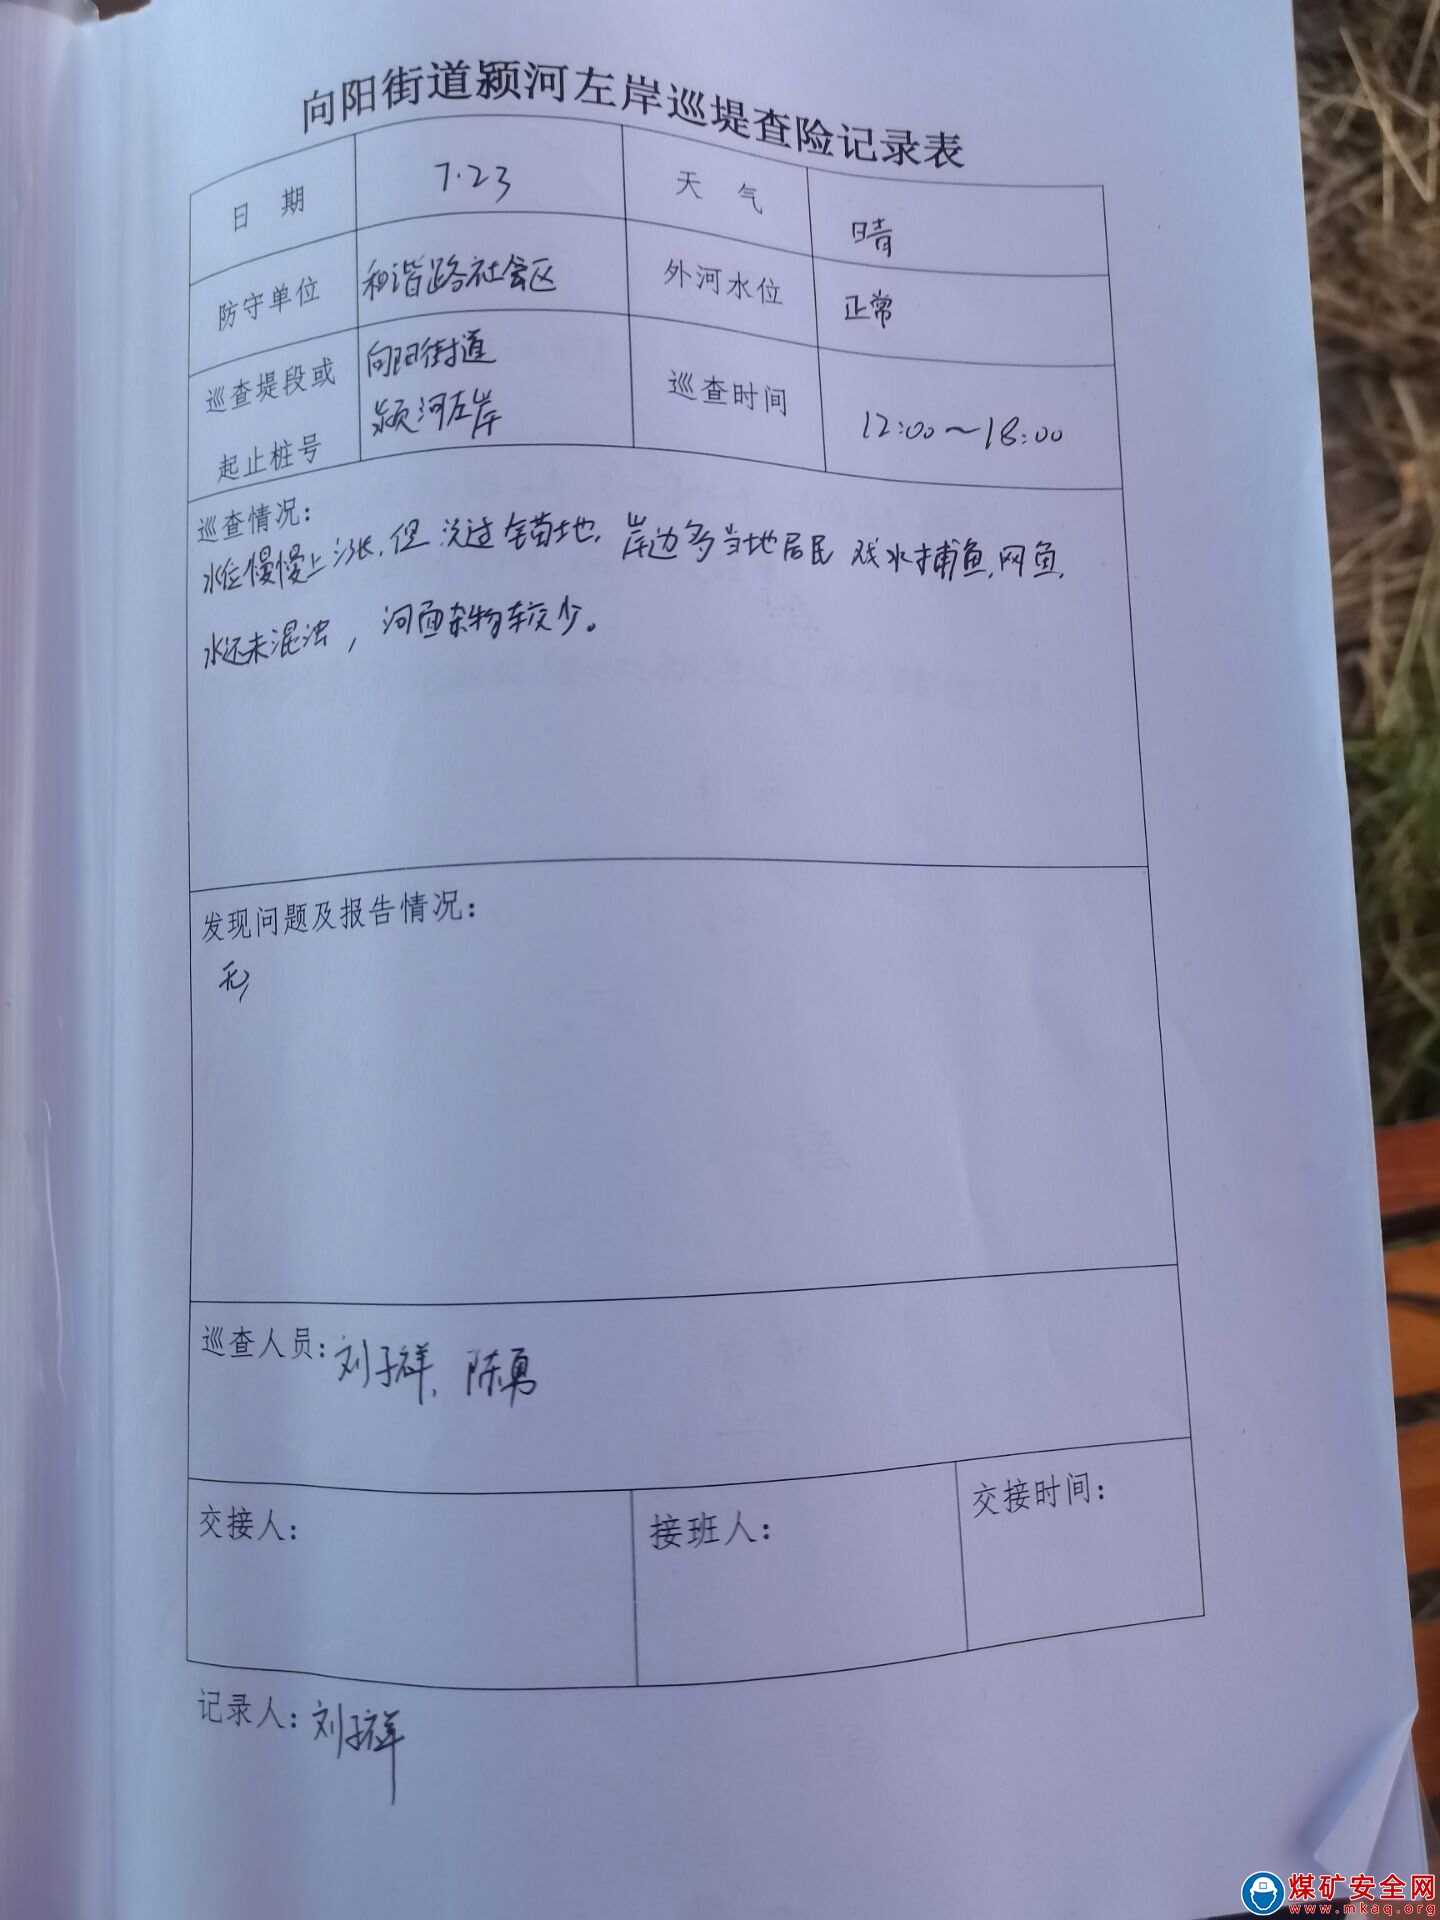 向阳街道颍河左岸巡堤查险记录表
日 期 7.23 天 气 晴
防守单位 和谐路社会区 外河水位 正常
巡查堤段或起止桩号 向阳街道颍河左岸 巡查时间 12:00~18:00
巡查情况:
水位慢慢上涨,但没过 地,岸边多当地居民戏水捕鱼,网鱼,
水还未混浊,河面杂物较少。
发现问题及报告情况:
无
巡查人员:刘子祥、陈勇
交接人: 接班人: 交接时间:
记录人:刘子祥
煤矿安全网
www.mkaq.org